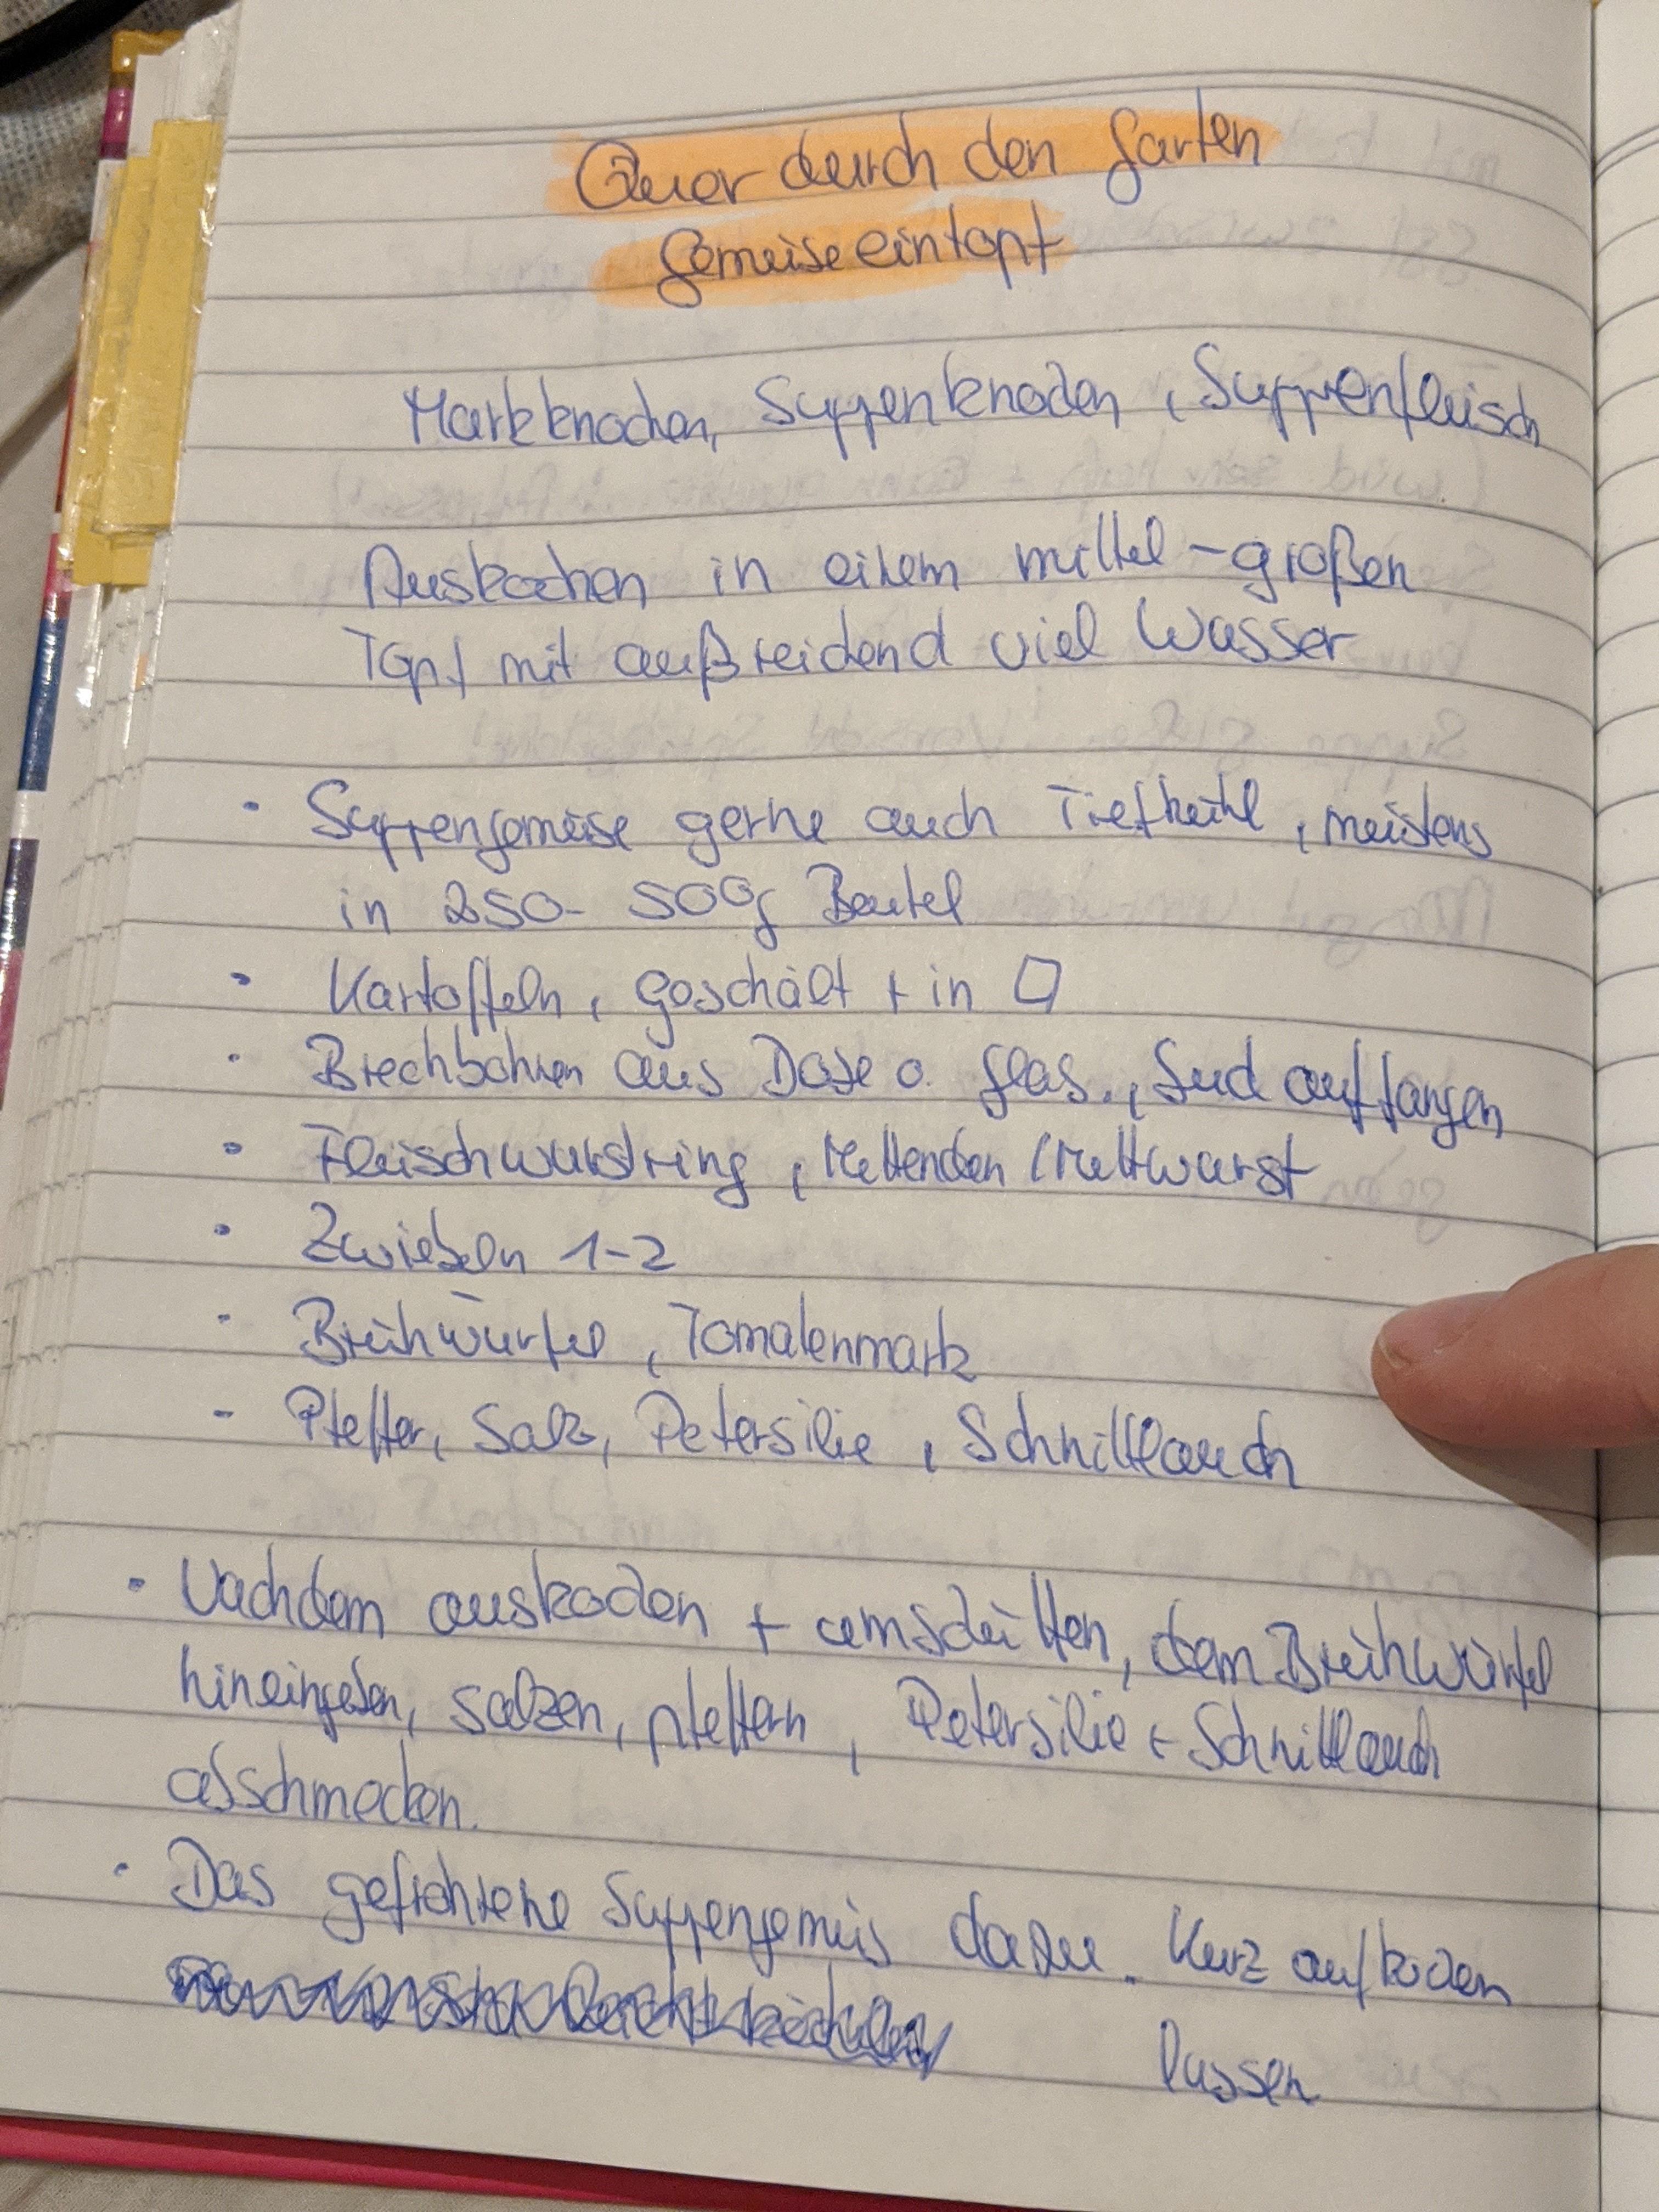 Quer durch den Garten
Gemüseeintopf
Markknochen, Suppenknochen, Suppenfleisch
Auskochen in einem mittel-großen
Topf mit außreichend viel Wasser
• Suppengemüse gerne auch Tiefkühl, meistens
in 250- 500g Beutel
• Kartoffeln, geschält + in □
• Brechbohnen aus Dose o. Glas., Sud auffangen
• Fleischwurstring, Mettenden / Mettwurst
• Zwiebeln 1-2
• Brühwürfel, Tomatenmark
- Pfeffer, Salz, Petersilie, Schnittlauch
• Nachdem auskochen + umschütten, dem Brühwürfel
hineingeben, salzen, pfeffern, Petersilie + Schnittlauch
abschmecken.
• Das gefrohrene Suppengemüs dazu. Kurz aufkochen
lassen